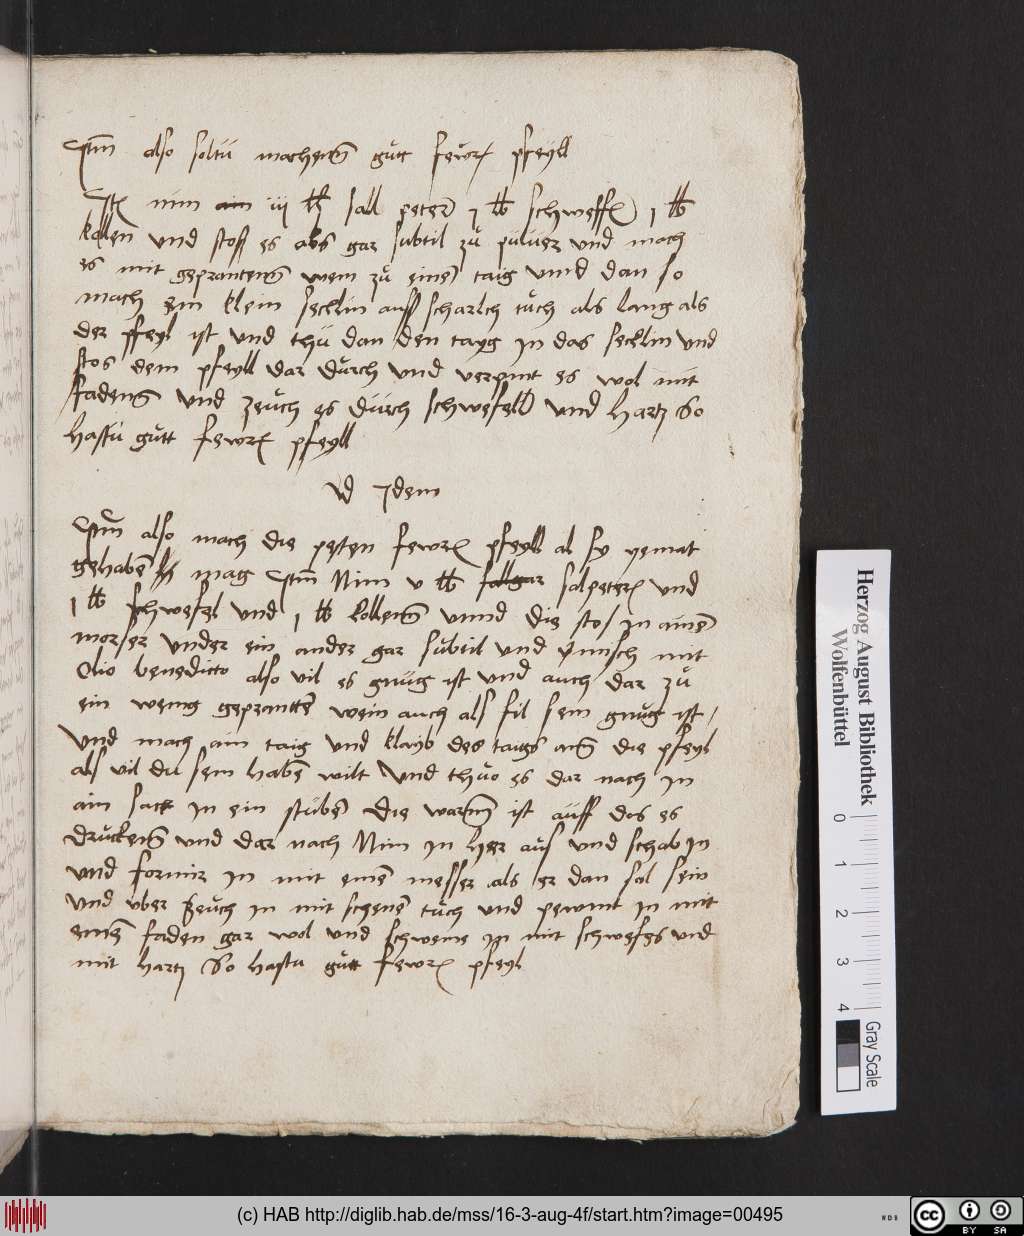 Itm also soltu machenn gutt fewr pfeyll
Itm nim iij lb sall peter j lb schweffel j lb
kollen und stoss es als gar subtil zu pulver und mach
es mit geprantenn wein zu einem taig unnd dan so
mach ein klein secklin auss scharlch tuch als lang als
der pfeyl ist und thu dan den tayg in das secklin und
stos dem pfeyll dar durch und verpint es wol mit
fadenn und zeuch es durch schwefell und hartz So
hastu gutt fewr pfeyll
ad idem
Itm also mach die pesten fewr pfeyll al sy yemat
gehaben mag Itm Nim v lb salpeter und
j lb schwefel und j lb kollenn unnd die stos in ainem
morser under ein ander gar subtil und vmisch mit
Olio benedicto also vil es gnug ist und auch dar zu
ein wenig geprantten wein auch als fil sein gnug ist /
Und mach ain taig und klayb des taigs ann die pfeyl
als vil du sein haben wilt Und thuo es dar nach in
ain sack in ein stuben die warm ist auff das es
druckenn und dar nach Nim in her aus und schab in
und formir in mit einem messer als er dan sol sein
und uber zeuch in mit schenen tuch und pewint in mit
einem faden gar wol und schweme in mit schwefes und
mit hartz So hastu gutt fewr pfeyl
Herzog August Bibliothek
Wolfenbüttel
0 1 2 3 4
Gray Scale
(c) HAB http://diglib.hab.de/mss/16-3-aug-4f/start.htm?image=00495
WDB
cc BY SA